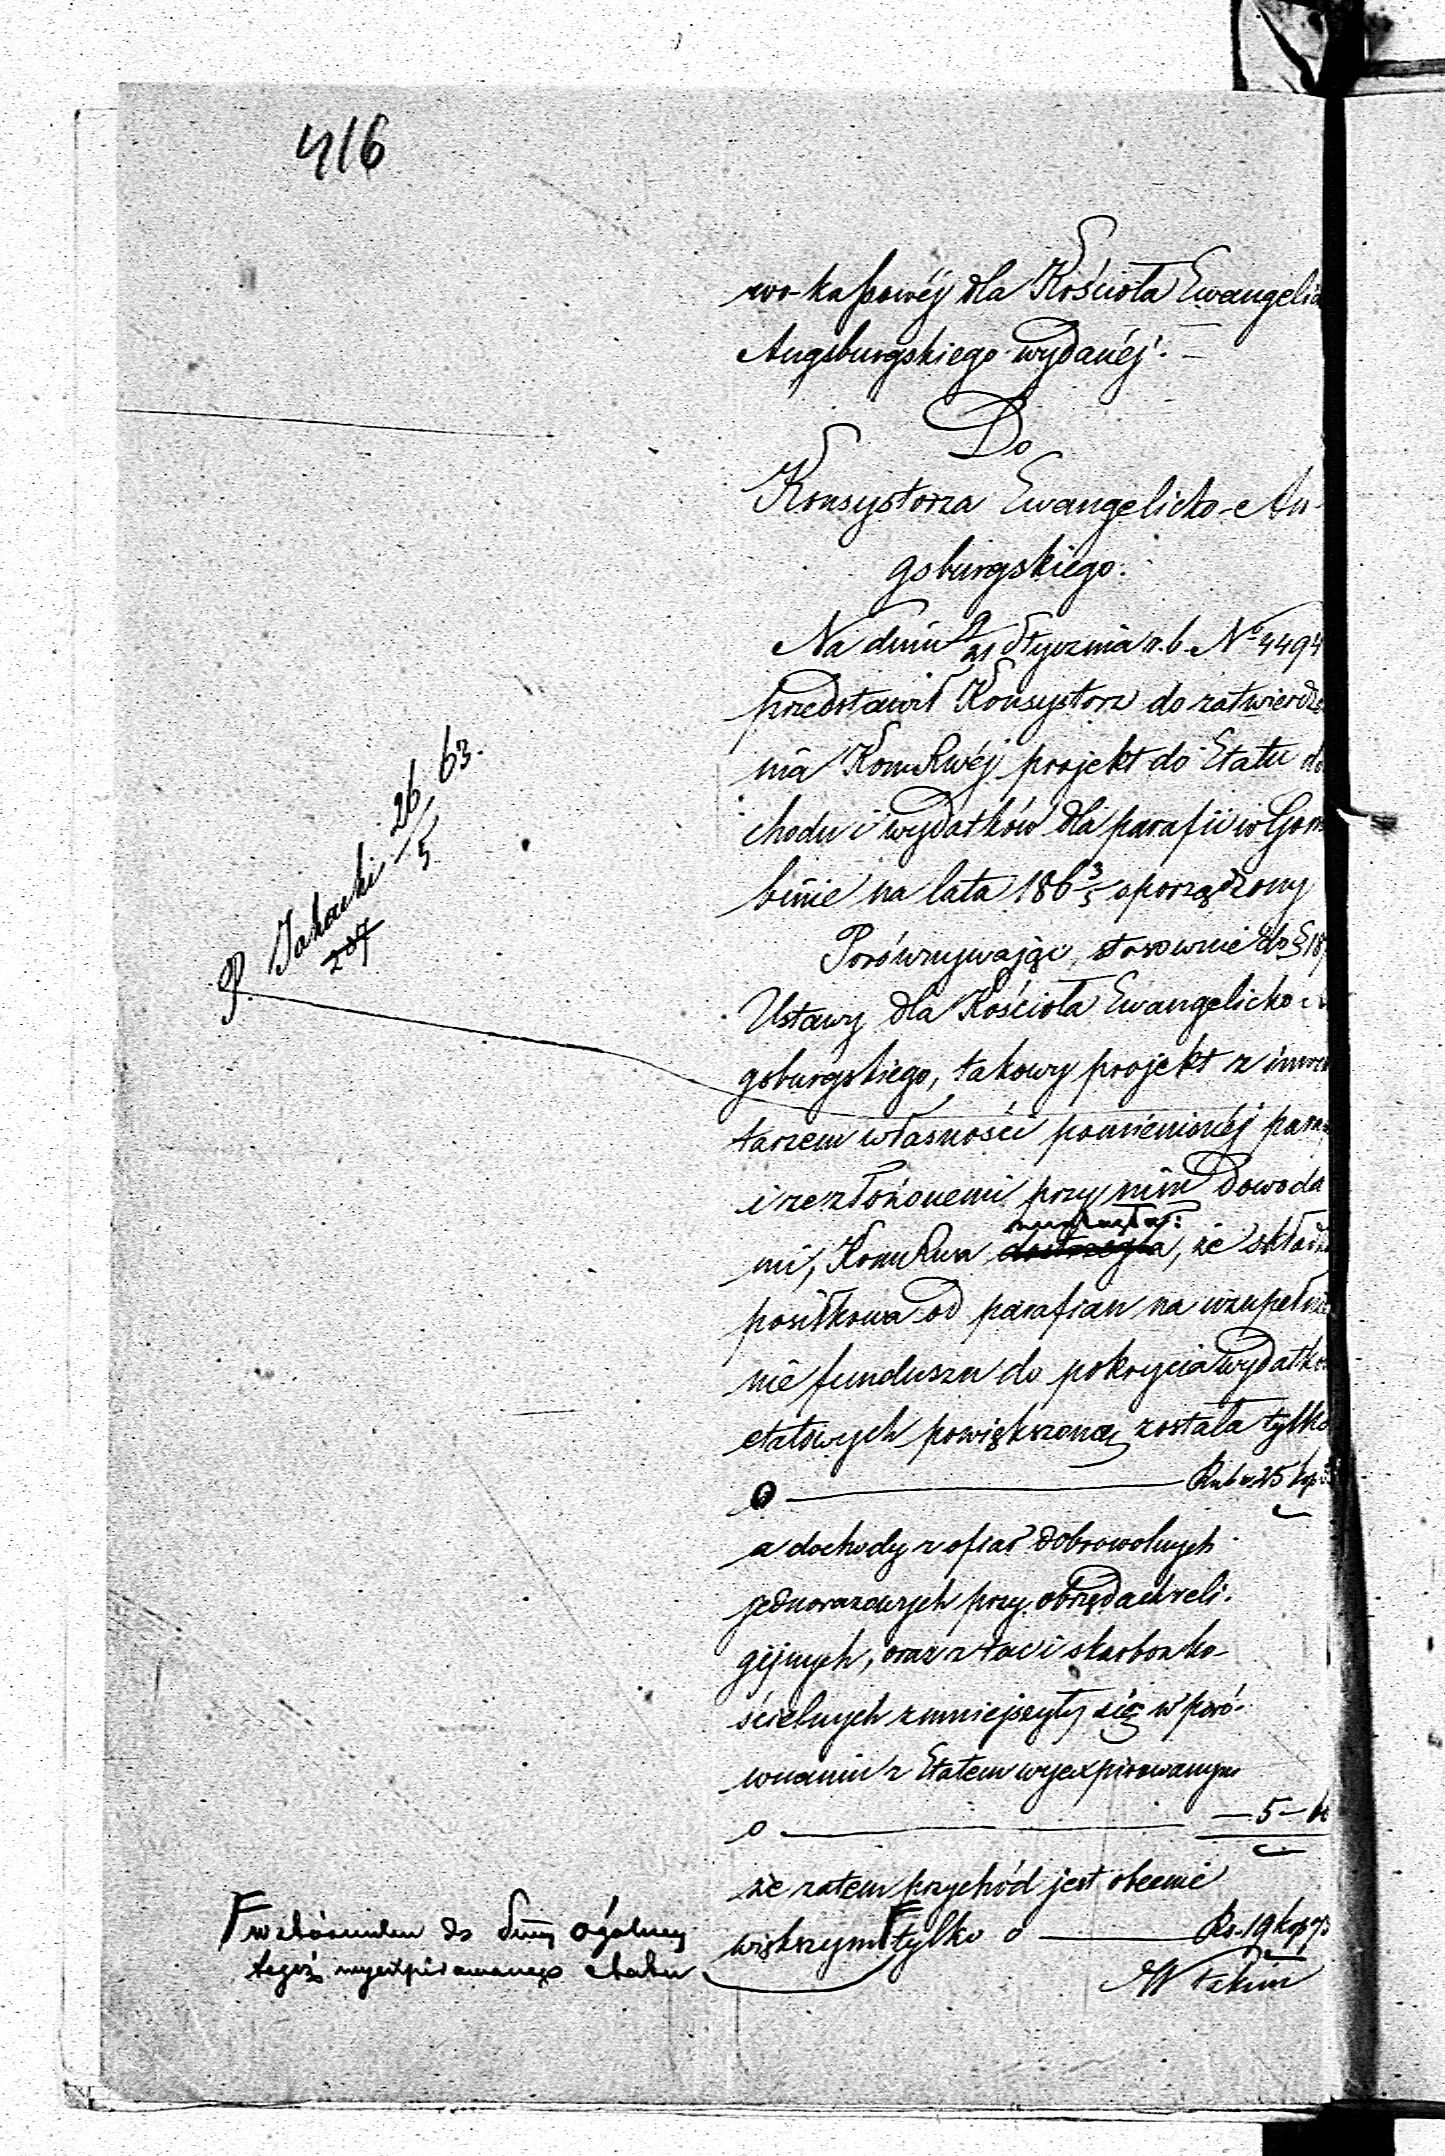 416
wo-kassowéj dla Kościoła Ewangelic
Augsburgskiego wydanéj. —
Do
Konsystorza Ewangelicko-Au-
gsburgskiego.
Na dniu 9/21 Stycznia r. b. No 4494
przedstawił Konsystorz do zatwierdze
nia KomRwéj projekt do Etatu do
chodu i wydatków dla parafii w Gom
binie na lata 186 3/5 sporządzony
P. 26/5 63.
207
Porównywając, stosownie do § 18
Ustawy dla Kościoła Ewangelicko-
gsburgskiego, takowy projekt z inwen
tarzem własności pomienionéj para
i ze złożonemi przy nim dowoda
mi, KomRwa dostrzegła, że skład
posiłkowa od parafian na uzupełnie
nie funduszu do pokrycia wydatków
etatowych powiększoną została tylko
o — Rub sr 25 kp
a dochody z ofiar dobrowolnych
jednorazowych przy obrzędach reli-
gijnych, oraz z tac i skarbon ko-
ścielnych zmniejszyły się w poró-
wnaniu z Etatem wyexpirowanym
o — 5 –
że zatem przychód jest obecnie
większym F tylko o — Rs. 19 kop 7
W takim
F w stosunku do summy ogólnej
tegoż wyexpirowanego etatu